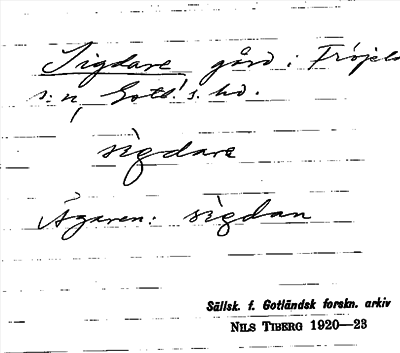 Sigdare gård i Fröjels
s:n, Gotl:s. hd.
sìgdare
Ägaren: sìgdan
Sällsk. f. Gotländsk forskn. arkiv
NILS TIBERG 1920—23